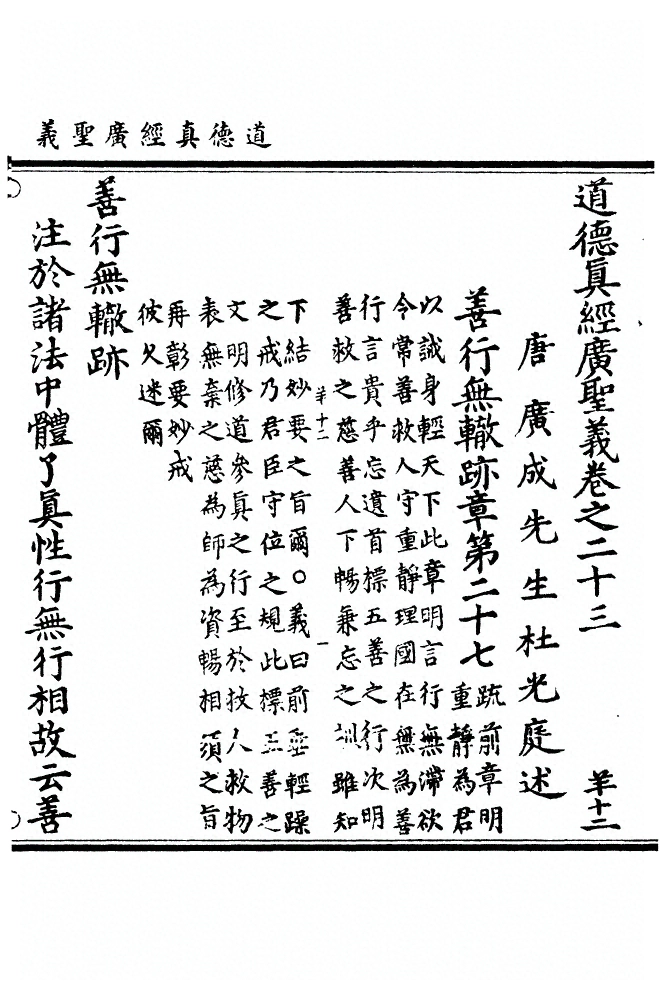 道德真經廣聖義
道德眞經廣聖義卷之二十三 羊十二
唐廣成先生杜光庭述
善行無轍跡章第二十七 疏前章明
重靜為君
以誡身輕天下此章明言行無滯欲
令常善救人守重靜理國在無為善
行言貴乎忘遺首標五善之行次明
善救之慈善人下暢兼忘之訓雖知
羊十二 一
下結妙要之旨爾○義曰前垂輕躁
之戒乃君臣守位之規此標五善之
文明修道參真之行至於救人救物
表無棄之慈為師為資暢相須之旨
再彰要妙戒
彼久迷爾
善行無轍跡
注於諸法中體了眞性行無行相故云善